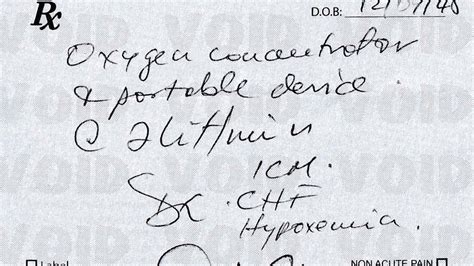 Rx
D.O.B: 12/09/48
Oxygen concentrator
& portable device
@ 2lit/min
ICM.
DX. CHF
Hypoxemia.
Label
NON ACUTE PAIN
VOID VOID VOID